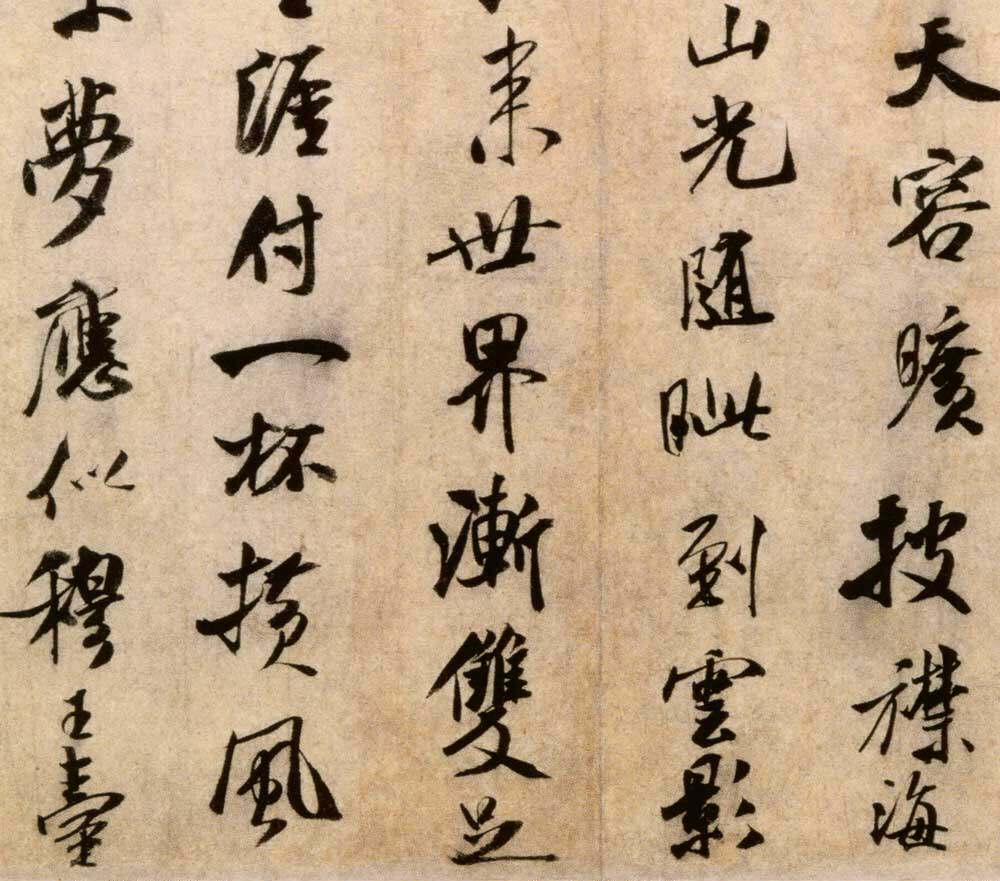 天容曠披襟海
山光隨眦到雲影
來世界漸雙足
涯付一杯橫風
夢應似穆王臺